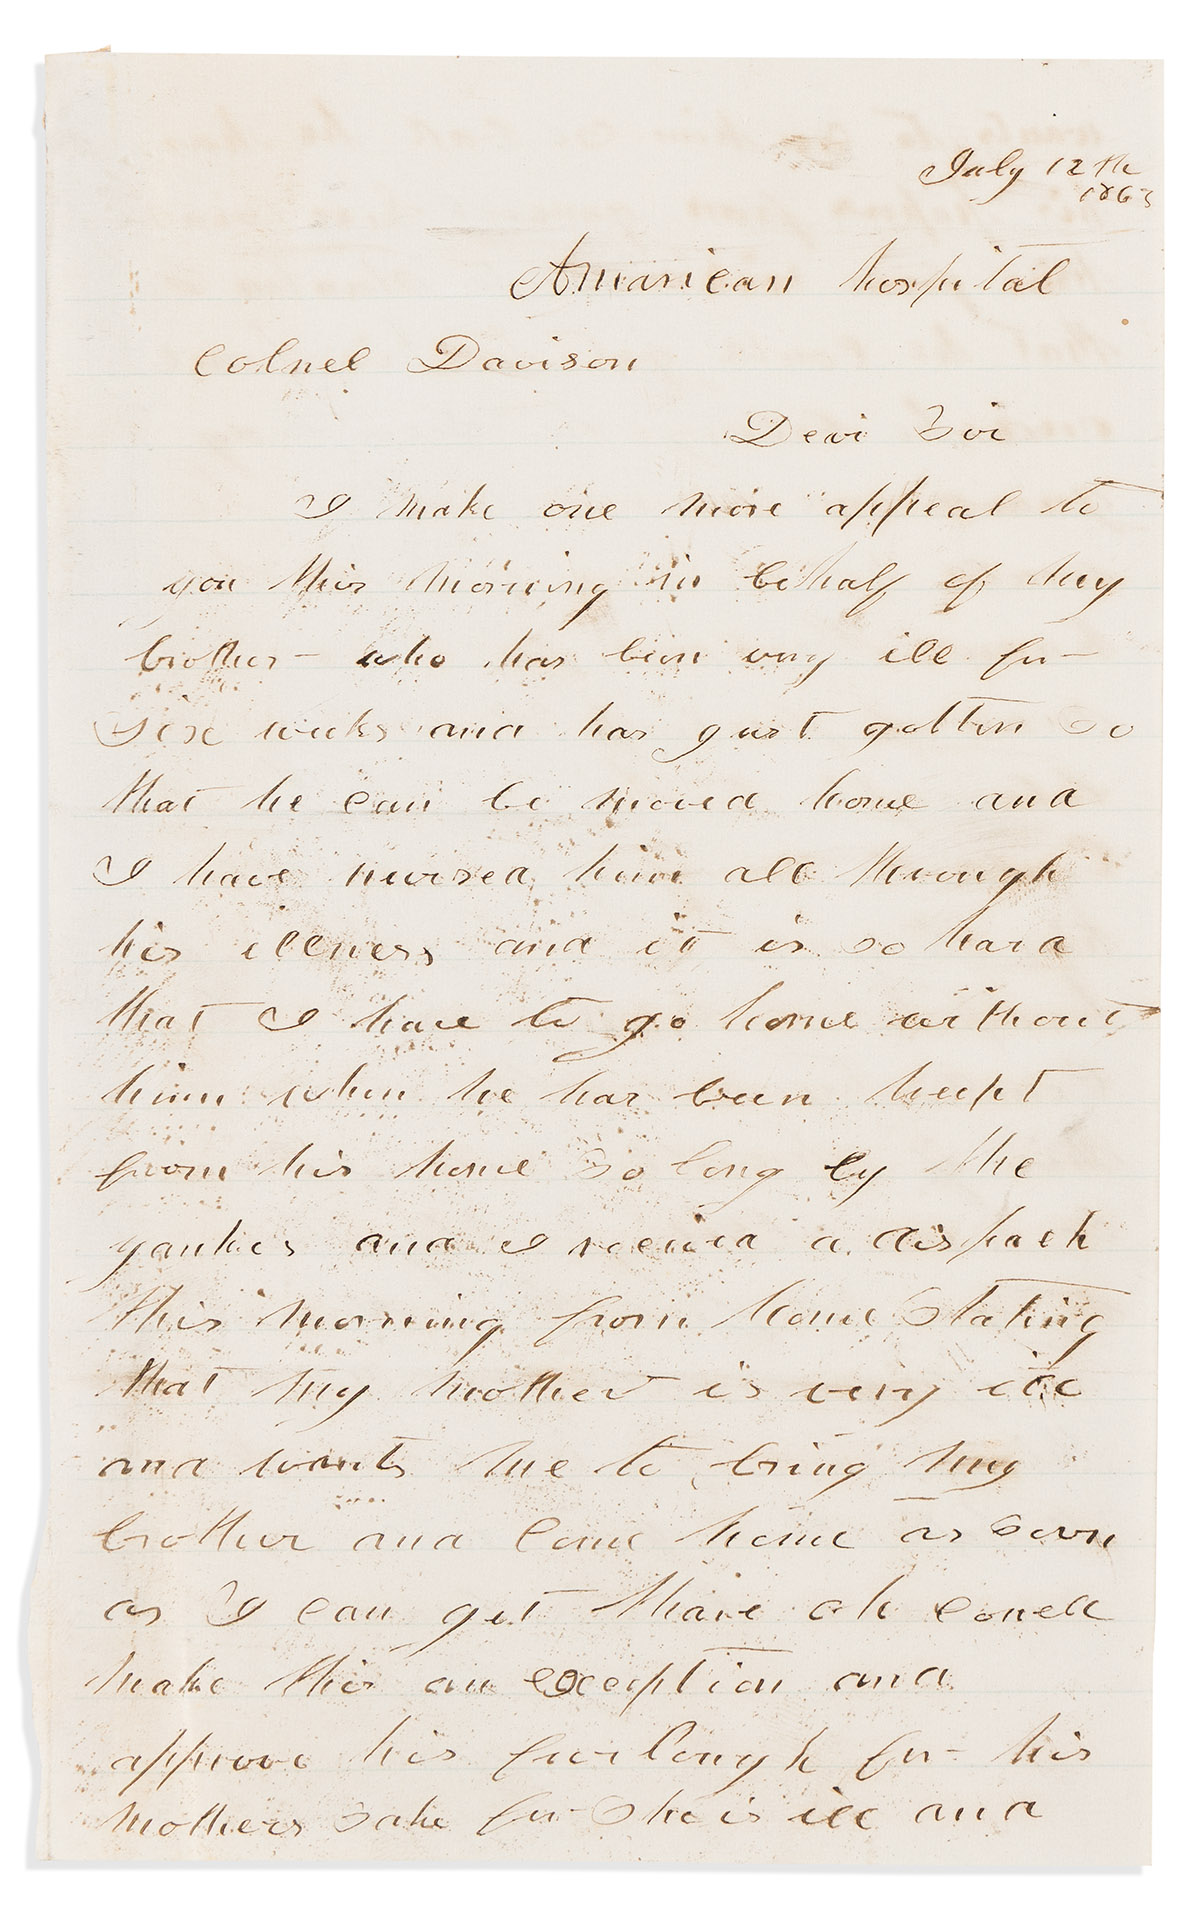 July 12th
1863
Amarican hospital
Colnel Davison
Dear Sir
I make one more appeal to
you this morning in behalf of my
brother who has been very ill for
Six weeks and has gust gotten So
that he can be moved home and
I have nursed him all through
his illness and it is so hard
that I have to go home without
him when he has been keept
from his home So long by the
yankes and I recived a dispach
this morning from home Stating
that my mother is very ill
and wants me to bring my
brother and Come home as Soon
as I can get thare oh Conell
make this an exception and
approve his furlough for his
mothers Sake for She is ill and